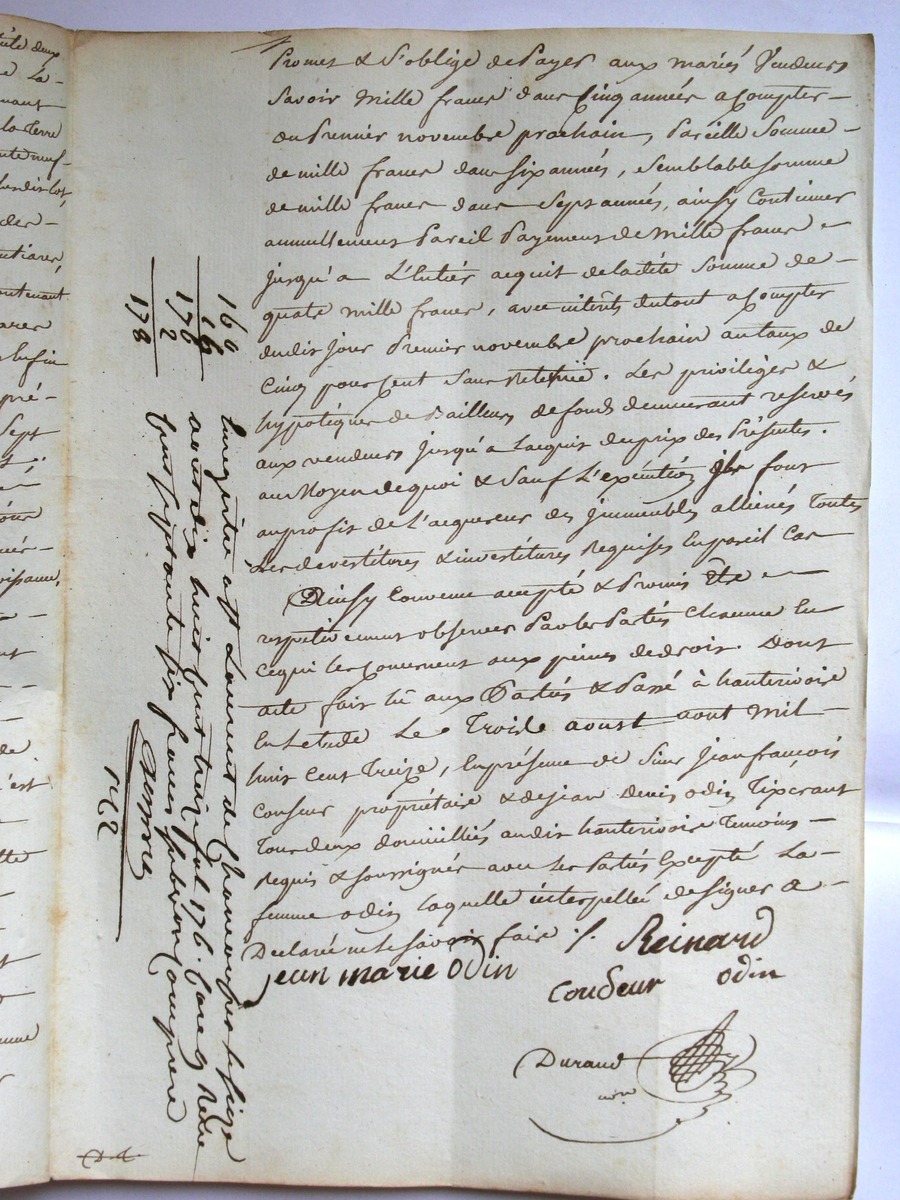 Promet & s'oblige de Payer aux mariés Vendeurs
Savoir Mille francs dans Cinq années a Compter
du Premier novembre prochain, Pareille Somme
de mille francs dans six années, semblable somme
de mille francs dans Sept années, ainsy Continuer
annuellement Pareil Payement de Mille francs
jusqu'a L'Entier acquit de ladite Somme de
quatre mille francs, avec intérêts du tout a Compter
dudit jour Premier novembre prochain au taux de
Cinq pour Cent Sans Retenüe. Les privilèges &
hypotèques de Bailleurs de fonds demeurant reservés
aux vendeurs jusqu'a l'acquit du prix des Présentes.
au Moyen de quoi & Sauf L'exécution ils font
au profit de L'acquereur des jmmeubles alliénés Toutes
Les devestitures & investitures Requises En pareil Cas
Ainsy Convenu accepté & Promis être
respectivement observer Par les Parties Chacune En
ce qui les Concernent aux peines de droit. Dont
acte fait lû aux Parties & Passé à hauterivoire
En Letude Le Trois aoust aout Mil
huit Cent Treize, En présence de Sieur Jean françois
Couseur propriétaire & de jean Denis odin Tixerant
Tous deux domicilliés audit hauterivoire Temoins
Requis & soussignés avec Les Parties Excepté La
femme odin laquelle interpellée de signer a
Declaré ne le savoir faire ./.
jean marie odin
Reinard
Couseur odin
Durand
nore
160
16
176
2
178
Enregistré a St Laurent de Chamousset le seize
aout dix huit cent treize fol. 176. Case 9 Reçu
cent soixante six francs subvention Comprise